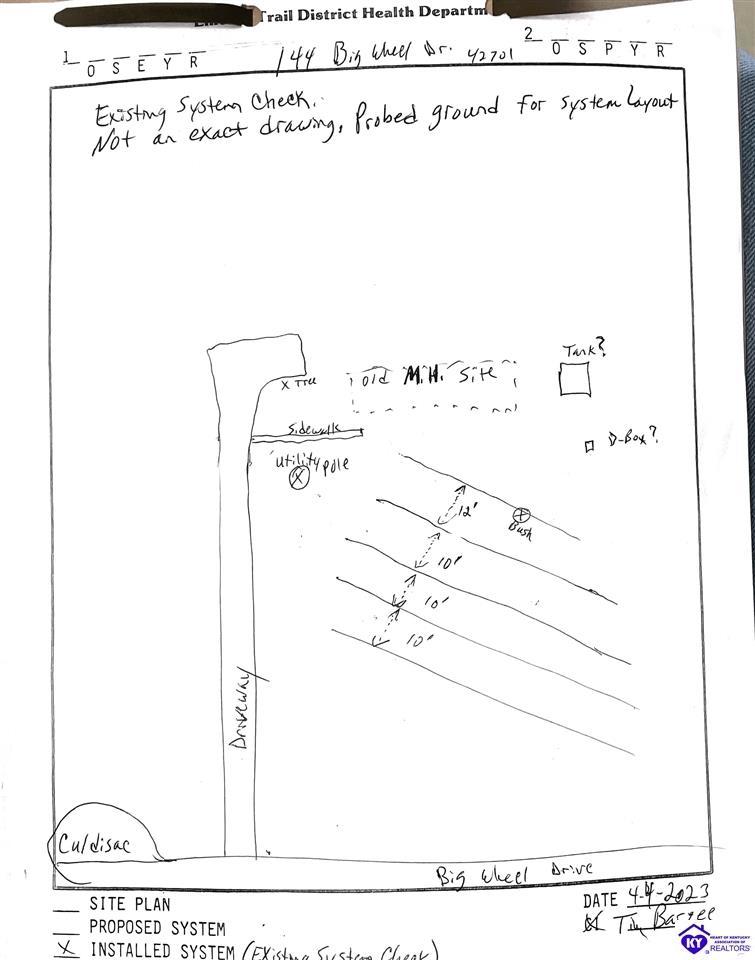 Trail District Health Departm
1 O S E Y R 144 Big Wheel Dr. 42701 2 O S P Y R
Existing System Check.
Not an exact drawing, Probed ground for system Layout
Tank?
X Tree
old M.H. Site
Sidewalk
D-Box?
utility pole
X
12'
Bush
10'
10'
10'
Driveway
Cu/disac
Big Wheel Drive
SITE PLAN
DATE 4-4-2023
PROPOSED SYSTEM
X INSTALLED SYSTEM (Existing System Check)
KY
HEART OF KENTUCKY
ASSOCIATION OF
REALTORS